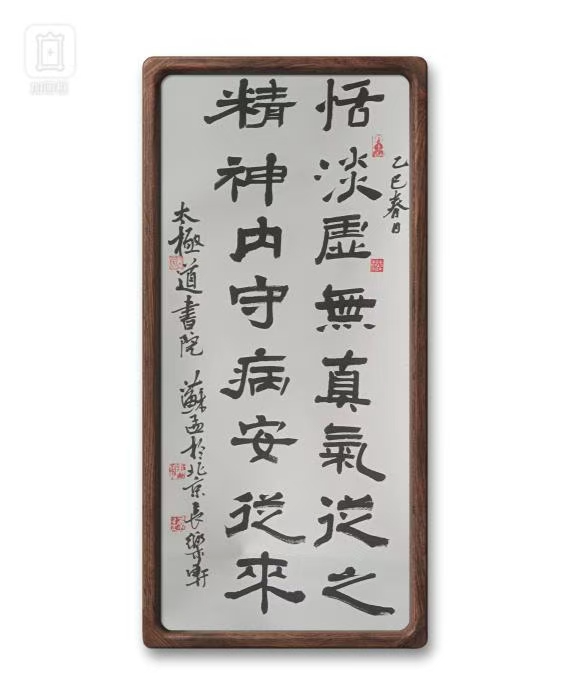 恬淡虛無真氣從之
精神內守病安從來
乙巳春日
太極道書院 蘇孟於北京長樂軒
加画框